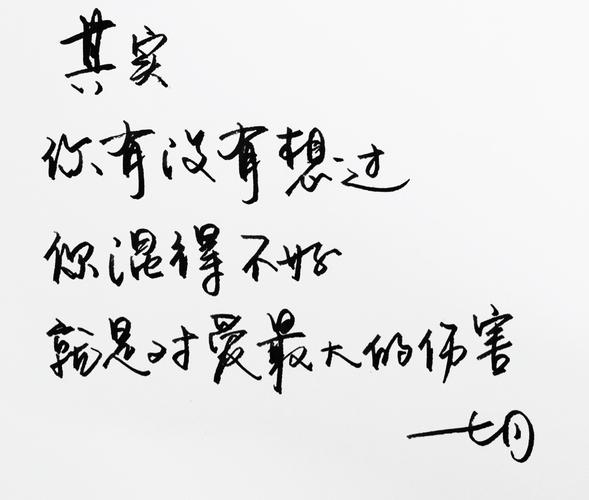 其实
你有没有想过
你混得不好
就是对爱最大的伤害
一七月